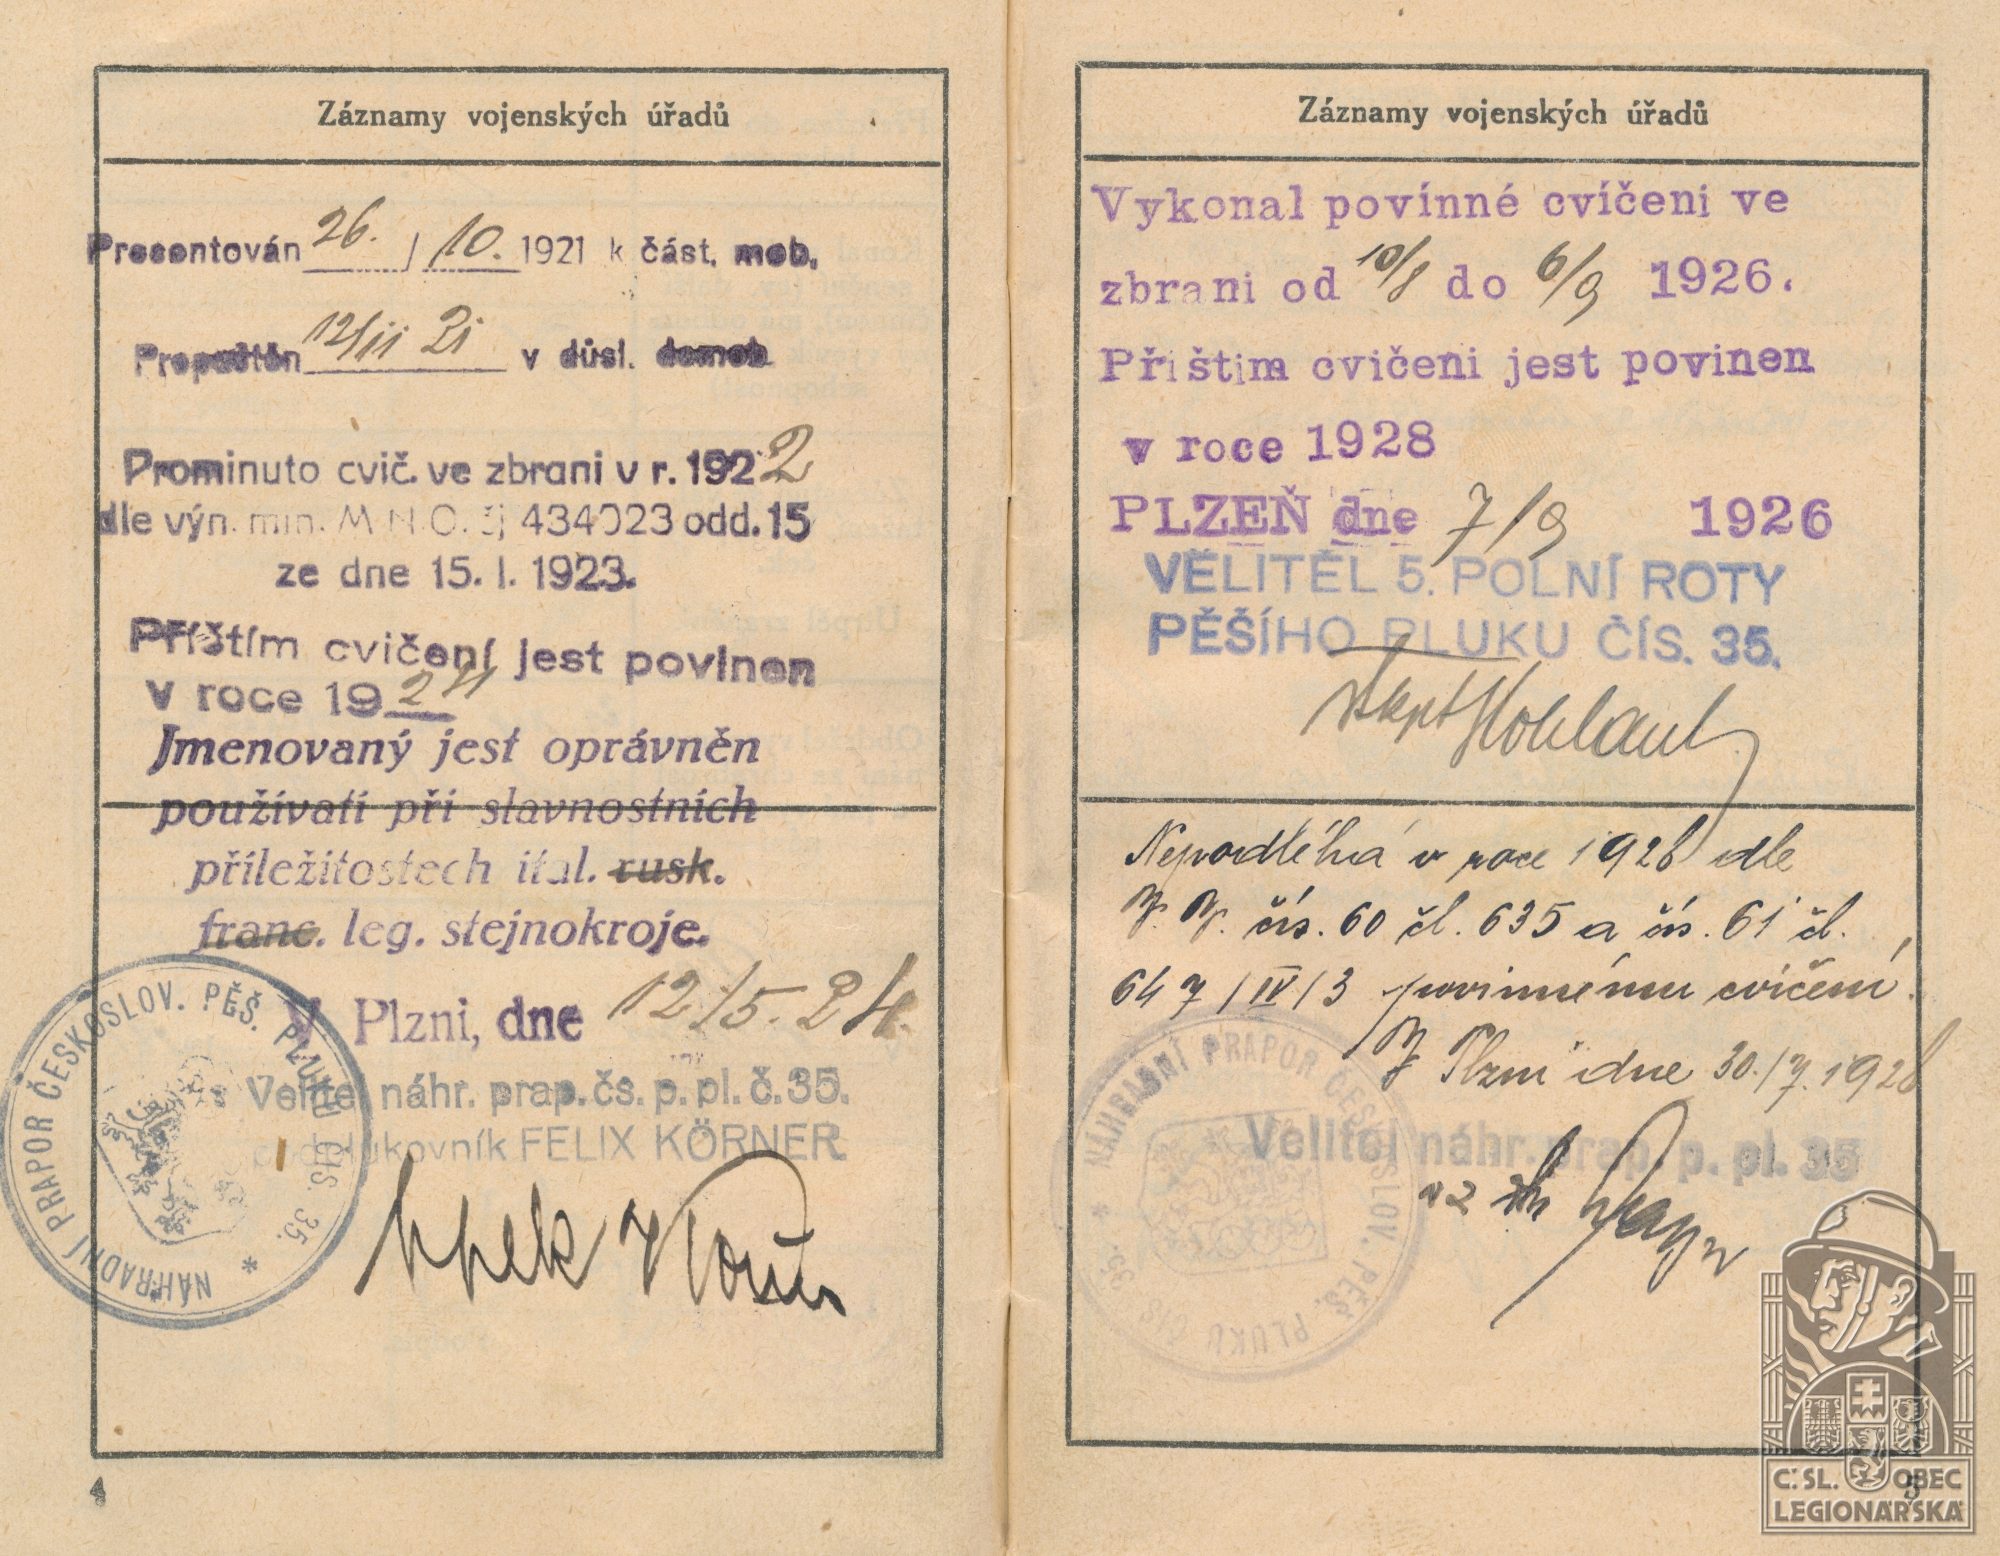 Záznamy vojenských úřadů
Presentován 26. / 10. 1921 k část. mob.
Propuštěn 12/11 21 v důsl. demob.
Prominuto cvič. ve zbrani v r. 1922
dle výn. min. M.N.O. čj 434023 odd. 15
ze dne 15. I. 1923.
Příštím cvičení jest povinen
v roce 1924
Jmenovaný jest oprávněn
používati při slavnostních
příležitostech ital. rusk.
franc. leg. stejnokroje.
V Plzni, dne 12/5. 24.
Velitel náhr. prap. čs. p. pl. č. 35.
podplukovník FELIX KÖRNER
NÁHRADNÍ PRAPOR ČESKOSLOV. PĚŠ. PLUKU ČÍS. 35. *
4
Záznamy vojenských úřadů
Vykonal povínné cvíčeni ve
zbrani od 10/8 do 6/9 1926.
Přištim cvičeni jest povinen
v roce 1928
PLZEŇ dne 7/9 1926
VĚLITĚL 5. POLNÍ ROTY
PĚŠÍHO PLUKU ČÍS. 35.
Nepodléhá v roce 1928 dle
čís. 60 čl. 635 a čís. 61 čl.
647/IV/3 povinnému cvičení.
V Plzni dne 30./7. 1928
NÁHRADNÍ PRAPOR ČESKOSLOV. PĚŠ. PLUKU ČÍS. 35. *
Velitel náhr. prap. p. pl. 35
5
Č. SL. OBEC
LEGIONÁŘSKÁ